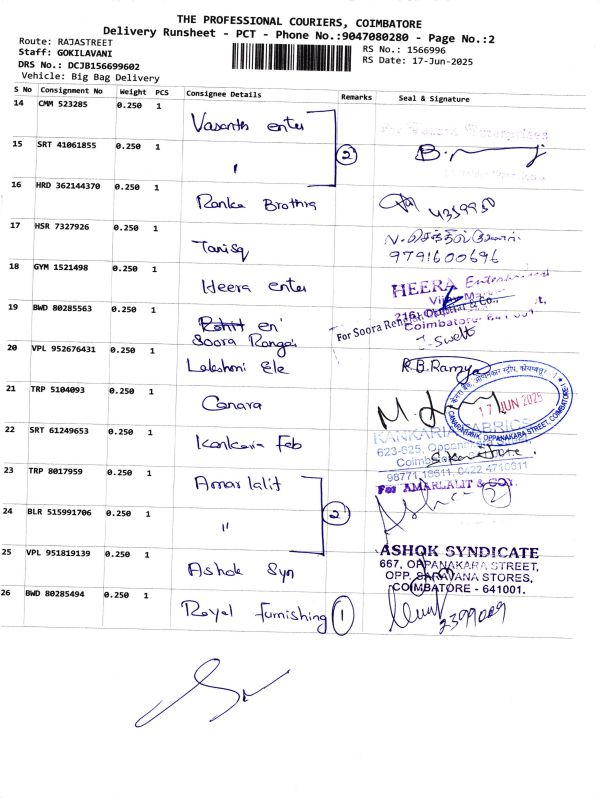 THE PROFESSIONAL COURIERS, COIMBATORE
Delivery Runsheet - PCT - Phone No.:9047080280 - Page No.:2
Route: RAJASTREET
RS No.: 1566996
Staff: GOKILAVANI
RS Date: 17-Jun-2025
DRS No.: DCJB156699602
Vehicle: Big Bag Delivery
S No Consignment No Weight PCS Consignee Details Remarks Seal & Signature
14 CMM 523285 0.250 1 Vasanth enter
15 SRT 41061855 0.250 1 " 2
16 HRD 362144370 0.250 1 Ranka Brothrs 4359950
17 HSR 7327926 0.250 1 Tanisq
9791600696
18 GYM 1521498 0.250 1 Heera enter HEERA
19 BWD 80285563 0.250 1 Soora Rangai For Soora
Coimbatore
20 VPL 952676431 0.250 1 Lakshmi Ele R.B.Ramya
21 TRP 5104093 0.250 1 Canara
17 JUN 2025
CANARA BANK, OPPANAKARA STREET, COIMBATORE
22 SRT 61249653 0.250 1 Kankaria Feb KANKARIA FABRICS
23 TRP 8017959 0.250 1 Amarlalit For AMARLALIT & COY.
24 BLR 515991706 0.250 1 " 2 2
25 VPL 951819139 0.250 1 Ashok Syn
ASHOK SYNDICATE
667, OPPANAKARA STREET,
OPP. SARAVANA STORES,
COIMBATORE - 641001.
26 BWD 80285494 0.250 1 Royal Furnishing 1 2399089